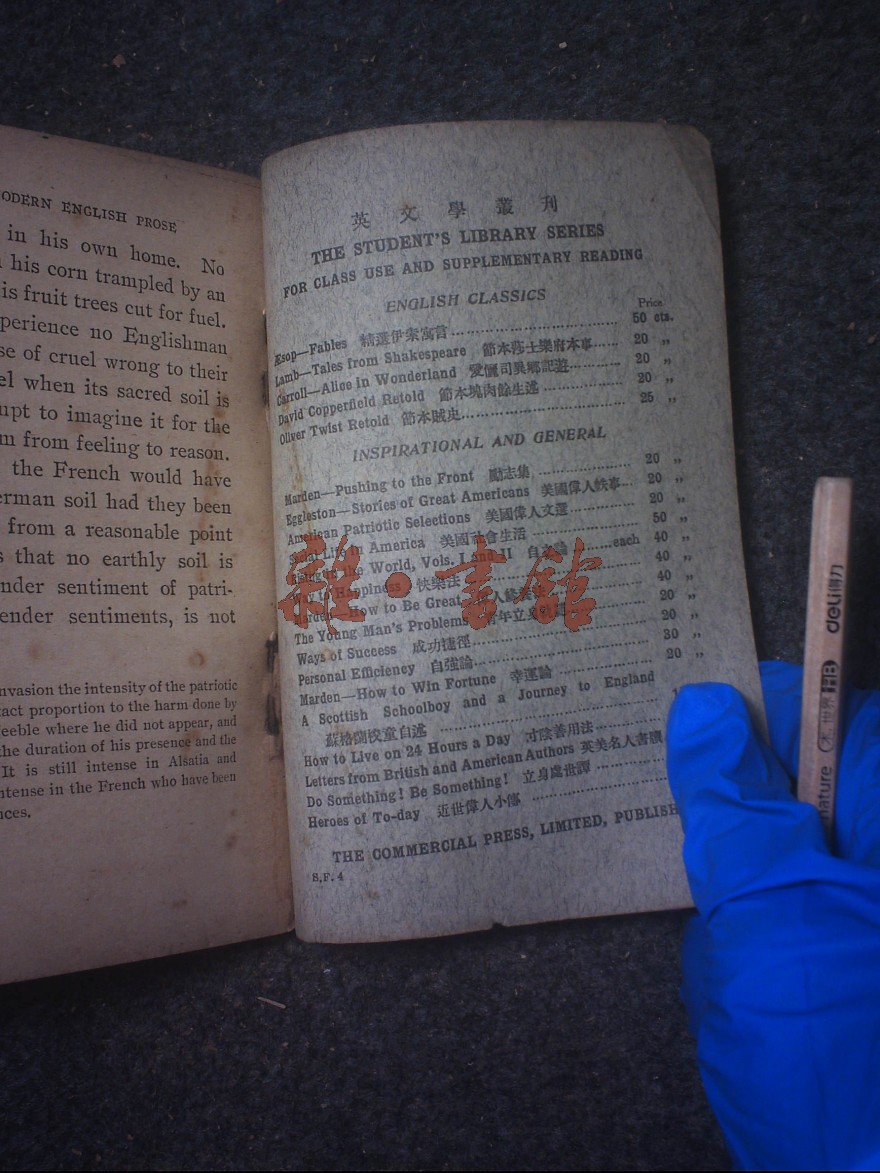 MODERN ENGLISH PROSE
in his own home. No
his corn trampled by an
is fruit trees cut for fuel.
perience no Englishman
se of cruel wrong to their
el when its sacred soil is
mpt to imagine it for the
m from feeling to reason.
the French would have
erman soil had they been
from a reasonable point
s that no earthly soil is
nder sentiment of patri-
ender sentiments, is not
nvasion the intensity of the patriotic
act proportion to the harm done by
feeble where he did not appear, and
the duration of his presence and the
It is still intense in Alsatia and
ntense in the French who have been
nces.
英文學叢刊
THE STUDENT'S LIBRARY SERIES
FOR CLASS USE AND SUPPLEMENTARY READING
ENGLISH CLASSICS
Price
Æsop—Fables 精選伊索寓言 50 cts.
Lamb—Tales from Shakespeare 節本莎士樂府本事 20 „
Carroll—Alice in Wonderland 愛儷司異鄉記遊 20 „
David Copperfield Retold 節本塊肉餘生述 20 „
Oliver Twist Retold 節本賊史 25 „
INSPIRATIONAL AND GENERAL
Marden—Pushing to the Front 勵志集 20 „
Eggleston—Stories of Great Americans 美國偉人軼事 20 „
American Patriotic Selections 美國偉人文選 20 „
Social Life in America 美國社會生活 50 „
in the World, Vols. I and II 自 論 each 40 „
Way to Happiness 快樂法 40 „
Marden—How to Be Great 40 „
The Young Man's Problems 青年立身 20 „
Ways of Success 成功捷徑 20 „
Personal Efficiency 自強論 30 „
Marden—How to Win Fortune 幸運論 20 „
A Scottish Schoolboy and a Journey to England
蘇格蘭校童自述
How to Live on 24 Hours a Day 寸陰善用法
Letters from British and American Authors 英美名人書牘
Do Something! Be Something! 立身處世譚
Heroes of To-day 近世偉人小傳
THE COMMERCIAL PRESS, LIMITED, PUBLISH
S.F.4
雜·書館
nature 木世界 HB deli得力